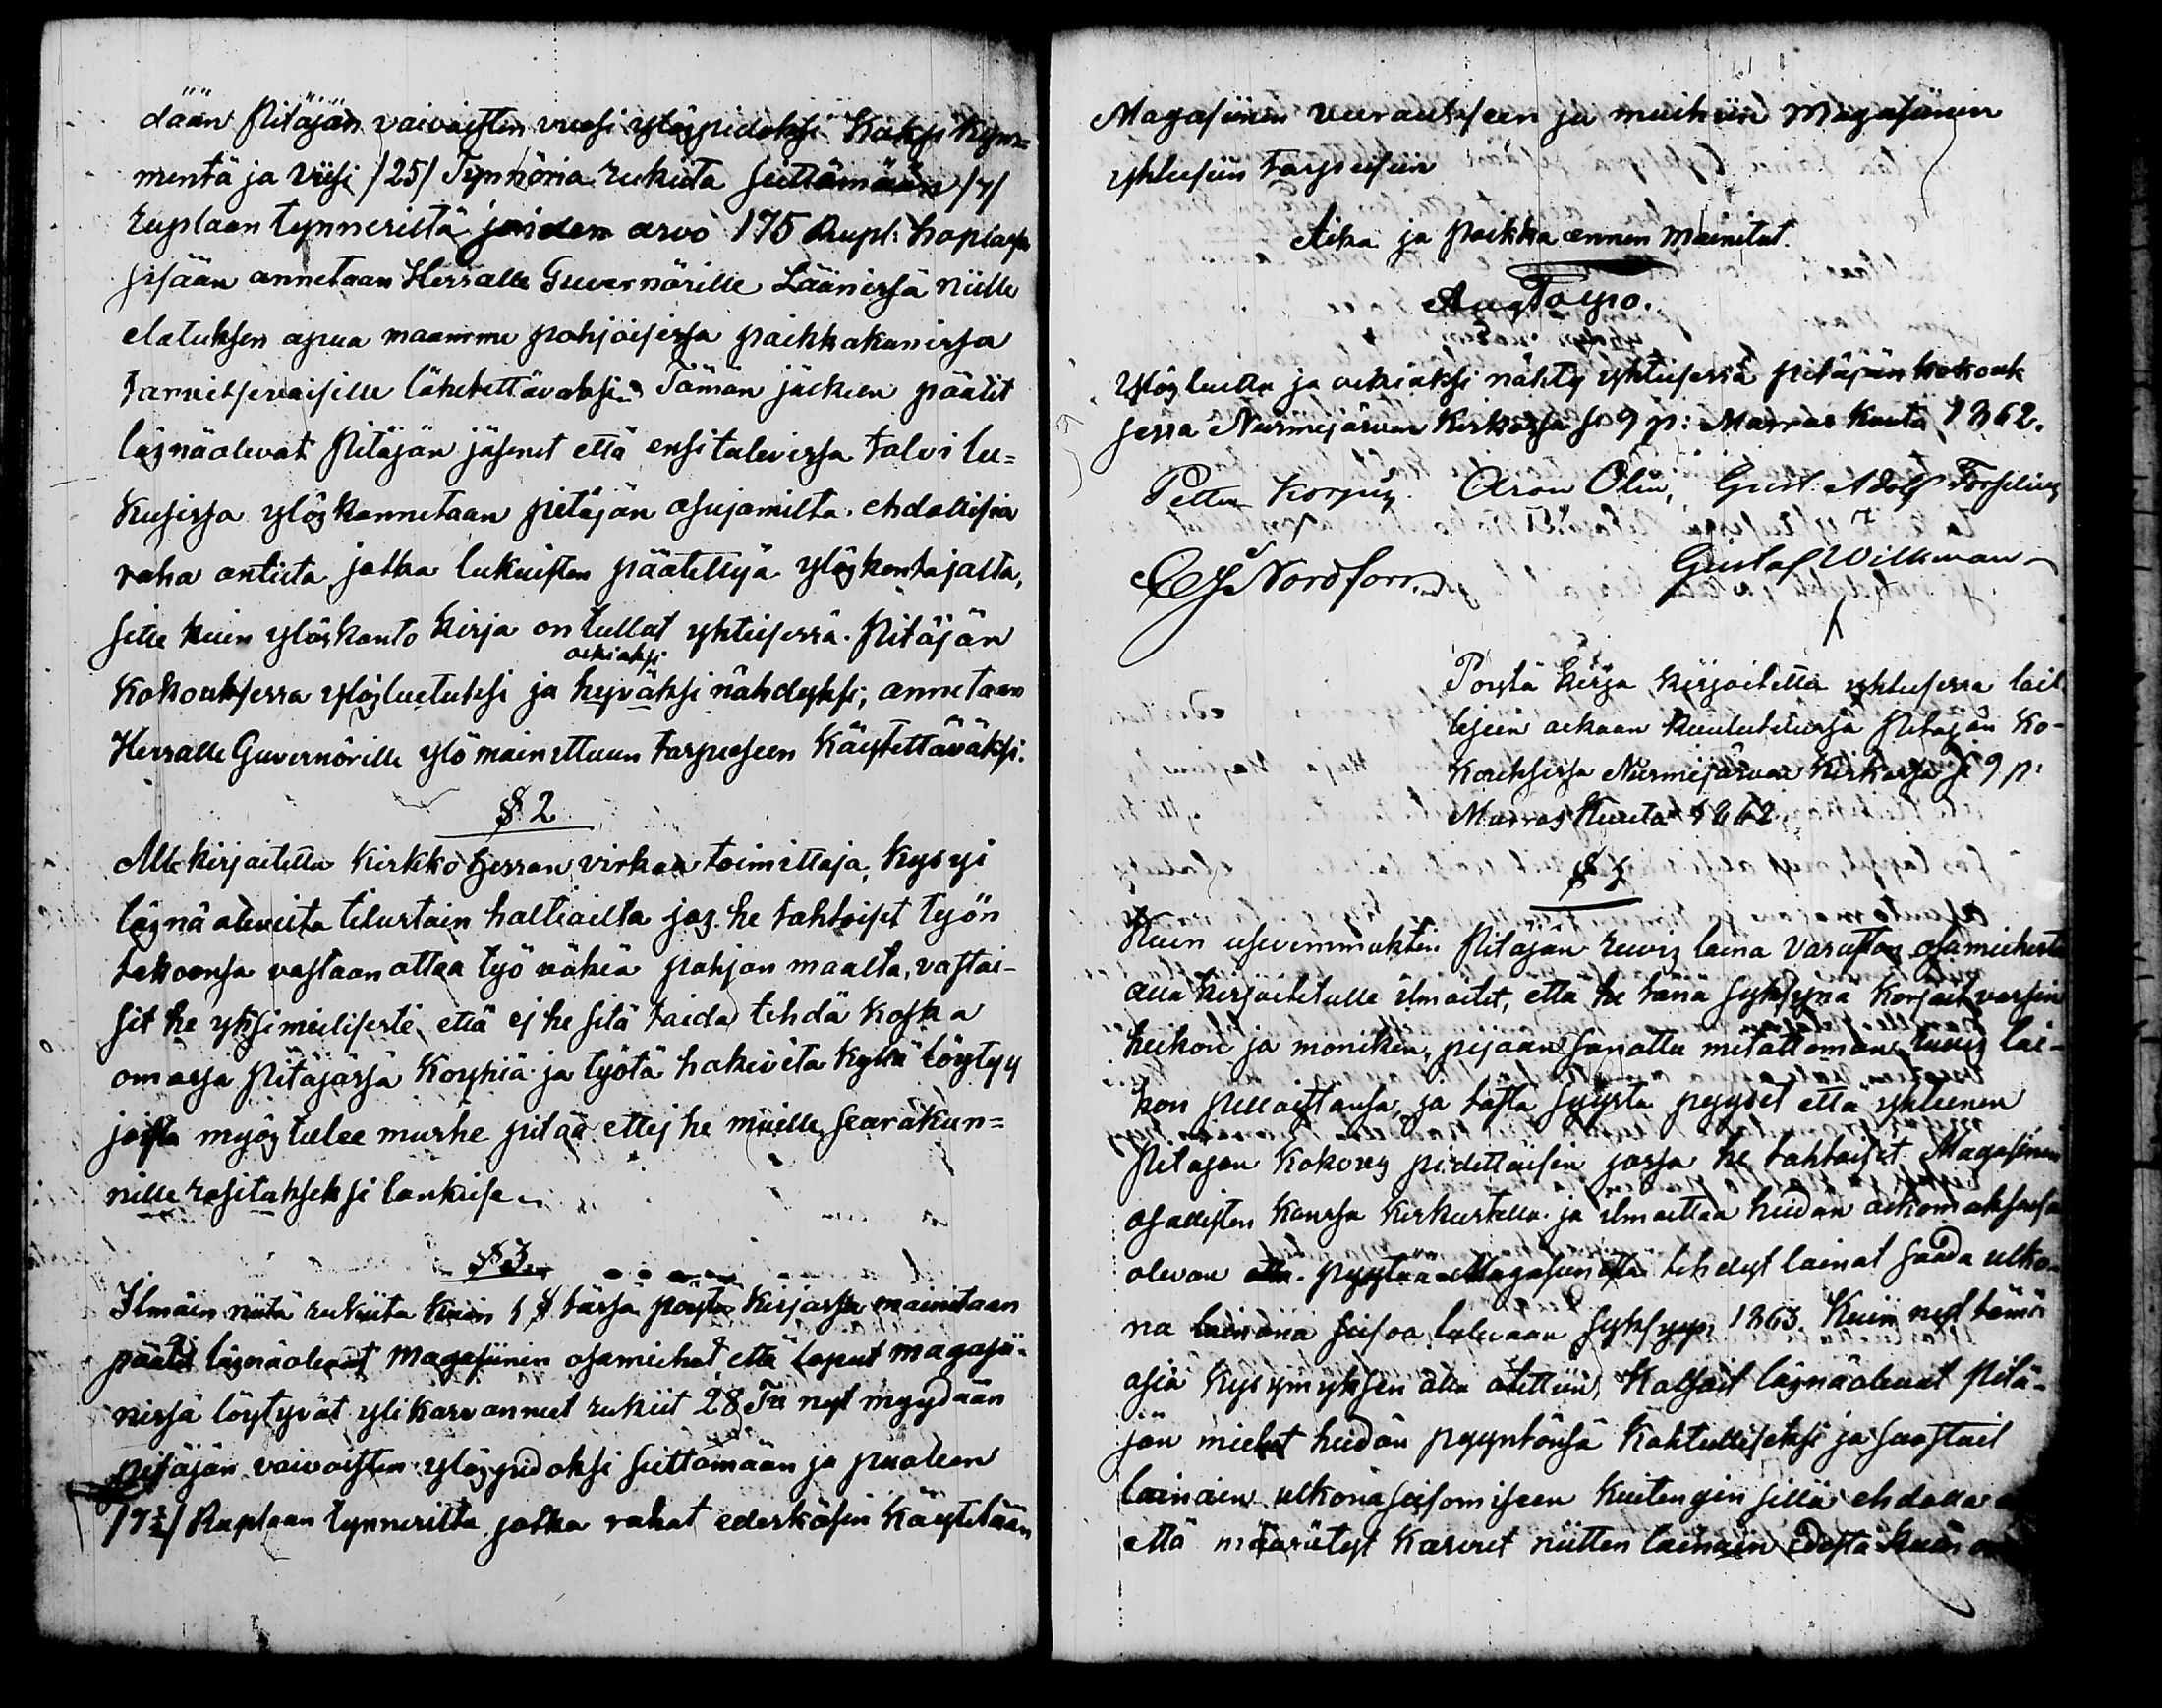 dään Pitäjän vaivaisten vuosi ylöspidoksi Kaksi kym=
mentä ja viisi /25/ Tynnöria rukiita seittämään /7/
ruplaan tynneriltä joiden arvo 175 Rupl: hopiassa
sisään annetaan Herralle Guvernörille Läänissä niille
elatuksen apua maamme pohjoisissa paikkakunissa
tarvitsevaisille lähetettäväksi. Tämän jälkeen päätit
läsnäolevat Pitäjän jäsenet että ensi tulevissa talvi lu=
kusissa ylöskannetaan pitäjän asujamilta ehdollisia
raha antiita, jotka lukuisten päätettyä ylöskantajalta,
sitte kuin ylöskanto kirja on tullut yhteisessä Pitäjän
oikiaksi
Kokouksessa ylösluetuksi ja hyväksi nähdyksi; annetaan
Herralle Guvernörille ylö mainittuun tarpeeseen käytettäväksi.
§ 2
Alle kirjoitettu Kirkko herran virkan toimittaja, kysyi
läsnä olevilta tilustain haltioilta jos he tahtoisit työn
tekoonsa vastaan ottaa työ väkiä pohjan maalta, vastai-
sit he yksimielisesti että ej he sitä taida tehdä koska
omassa Pitäjässä köyhiä ja työtä hakevita kyllä löytyy
joista myös tulee murhe pitää ettej he muille seurakun=
nille rasitukseksi lankeise.
§ 3
Ilmain niitä rukiita kuin 1 § tässä pöytä kirjassa mainitaan
päätit läsnäolevat Magasiinin osamiehet että loput magasi-
nissä löytyvät ylikasvanneet rukiit 28 Tn nyt myydään
pitäjän vaivaisten ylöspidoksi seittämään ja puoleen
/7½/ Ruplaan tynneriltä jotka rahat ederskäsin käytetään
Magasiinin varautkseen ja muihiin Magasiinin
yhteisiin tarpeisiin
Aika ja paikka ennen mainitut.
Aug
Ylösluettu ja oikiaksi nähty yhteisessä pitäjän kokouk
sessa Nurmijärven Kirkossa se 9 p: Marras kuuta 1862.
Petter Korpus. Aron Olin, Gust. Adolf Forselius
Nordfors
Gustaf Willman
Pöytä kirja kirjoitettu yhteisessä lail
lisein aikaan kuulutetussa Pitäjän ko-
kouksessa Nurmijärven Kirkossa se 9 p:
Marras Kuuta 1862
§ 1
Kuin usiemmakin Pitäjän ruis laina varaston osamiehistä
alla kirjoitetulle ilmoitit, että he tänä syksynä korjait varsin
heikon ja moniken, pijaan sanottu mitättömän ruis lai-
hon pelloistansa, ja tästä syystä pyysit että yhteinen
Pitäjän Kokous pidettäisin jossa he tahtoisit Magasinin
osallisten kanssa keskustella ja ilmoittaa heidän aikomuksensa
olevan pyytää Magasinista tehdyt lainat saada ulko-
na lainana seisoa tulevaan syksyyn 1863. Kuin nyt tämä
asia kysymyksen alla otettiin, katsoit läsnäolevat Pitä-
jän miehet heidän pyyntönsä kohtulliseksi ja suostuit
lainain ulkona seisomiseen kuitengin sillä ehdolla
että määrätyt kasvut niitten lainain edestä kuin